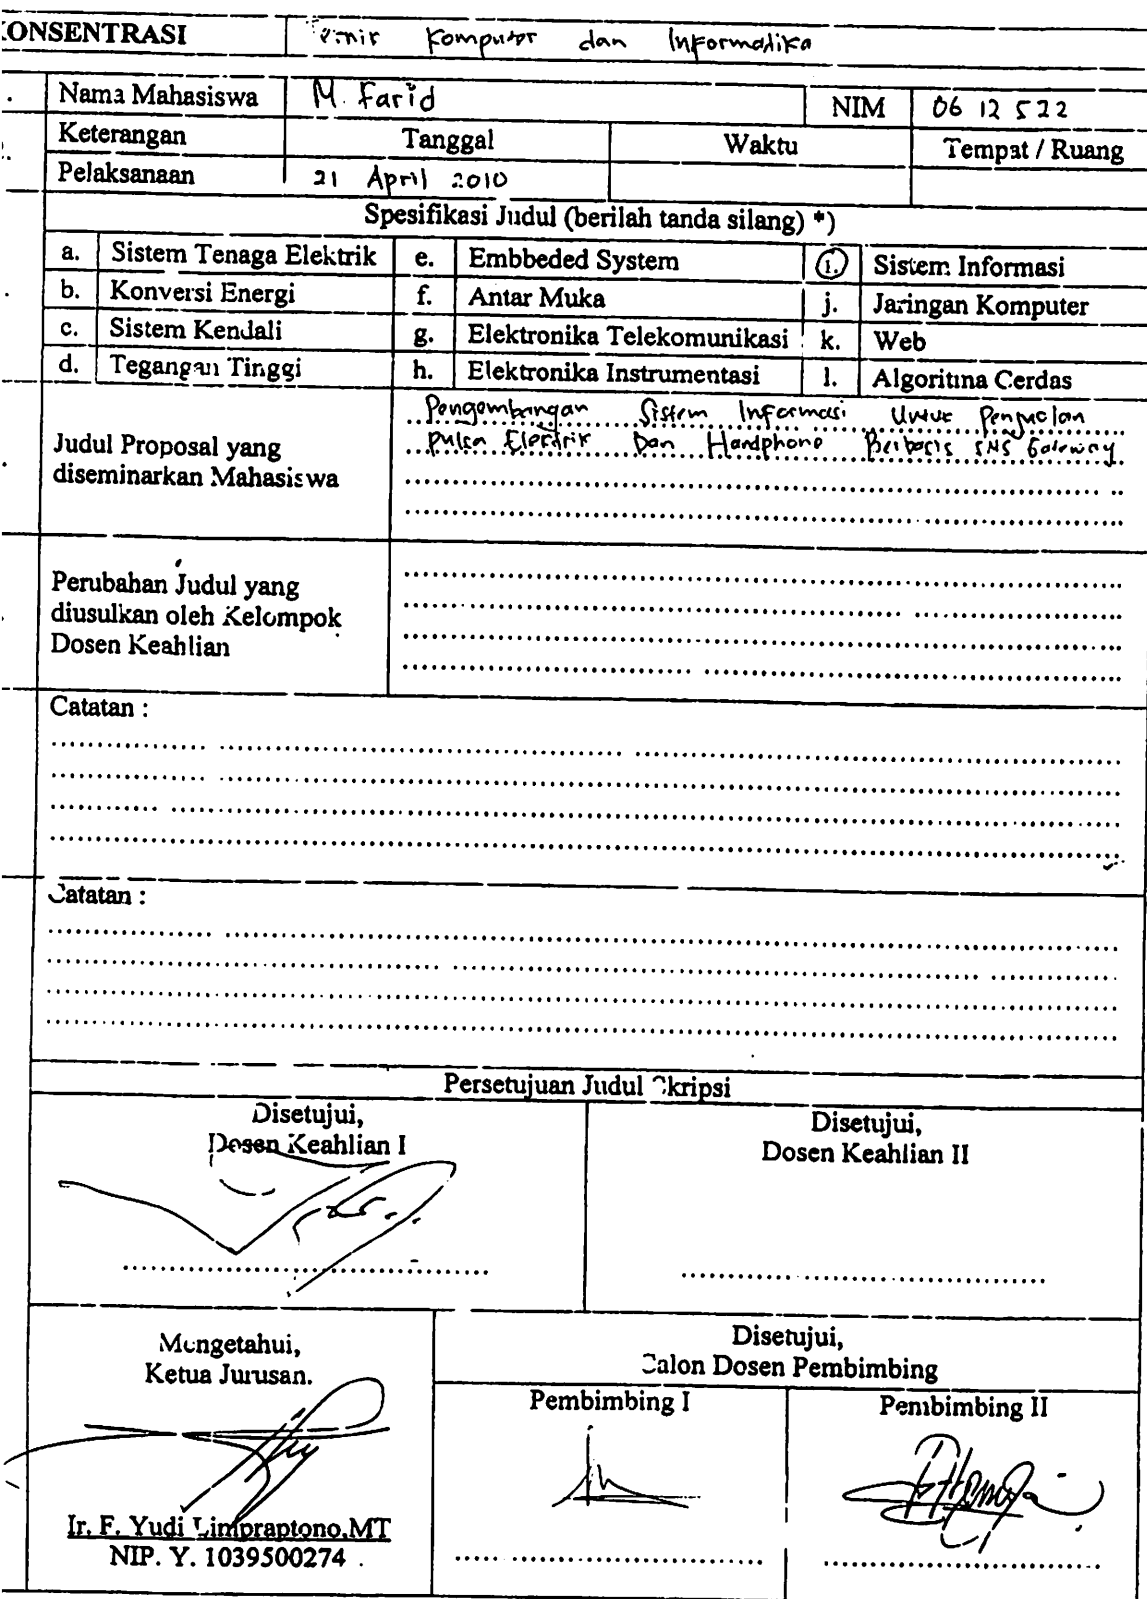 KONSENTRASI Teknik Komputer dan Informatika
Nama Mahasiswa M. Farid NIM 06 12 522
Keterangan Tanggal Waktu Tempat / Ruang
Pelaksanaan 21 April 2010
Spesifikasi Judul (berilah tanda silang) *)
a. Sistem Tenaga Elektrik e. Embbeded System i. Sistem Informasi
b. Konversi Energi f. Antar Muka j. Jaringan Komputer
c. Sistem Kendali g. Elektronika Telekomunikasi k. Web
d. Tegangan Tinggi h. Elektronika Instrumentasi l. Algoritma Cerdas
Pengembangan Sistem Informasi Untuk Penjualan
Pulsa Elektrik Dan Handphone Berbasis SMS Gateway
Judul Proposal yang
diseminarkan Mahasiswa
Perubahan Judul yang
diusulkan oleh Kelompok
Dosen Keahlian
Catatan :
Catatan :
Persetujuan Judul Skripsi
Disetujui,
Dosen Keahlian I
Disetujui,
Dosen Keahlian II
Mengetahui,
Ketua Jurusan.
Ir. F. Yudi Limpraptono,MT
NIP. Y. 1039500274
Disetujui,
Calon Dosen Pembimbing
Pembimbing I
Pembimbing II